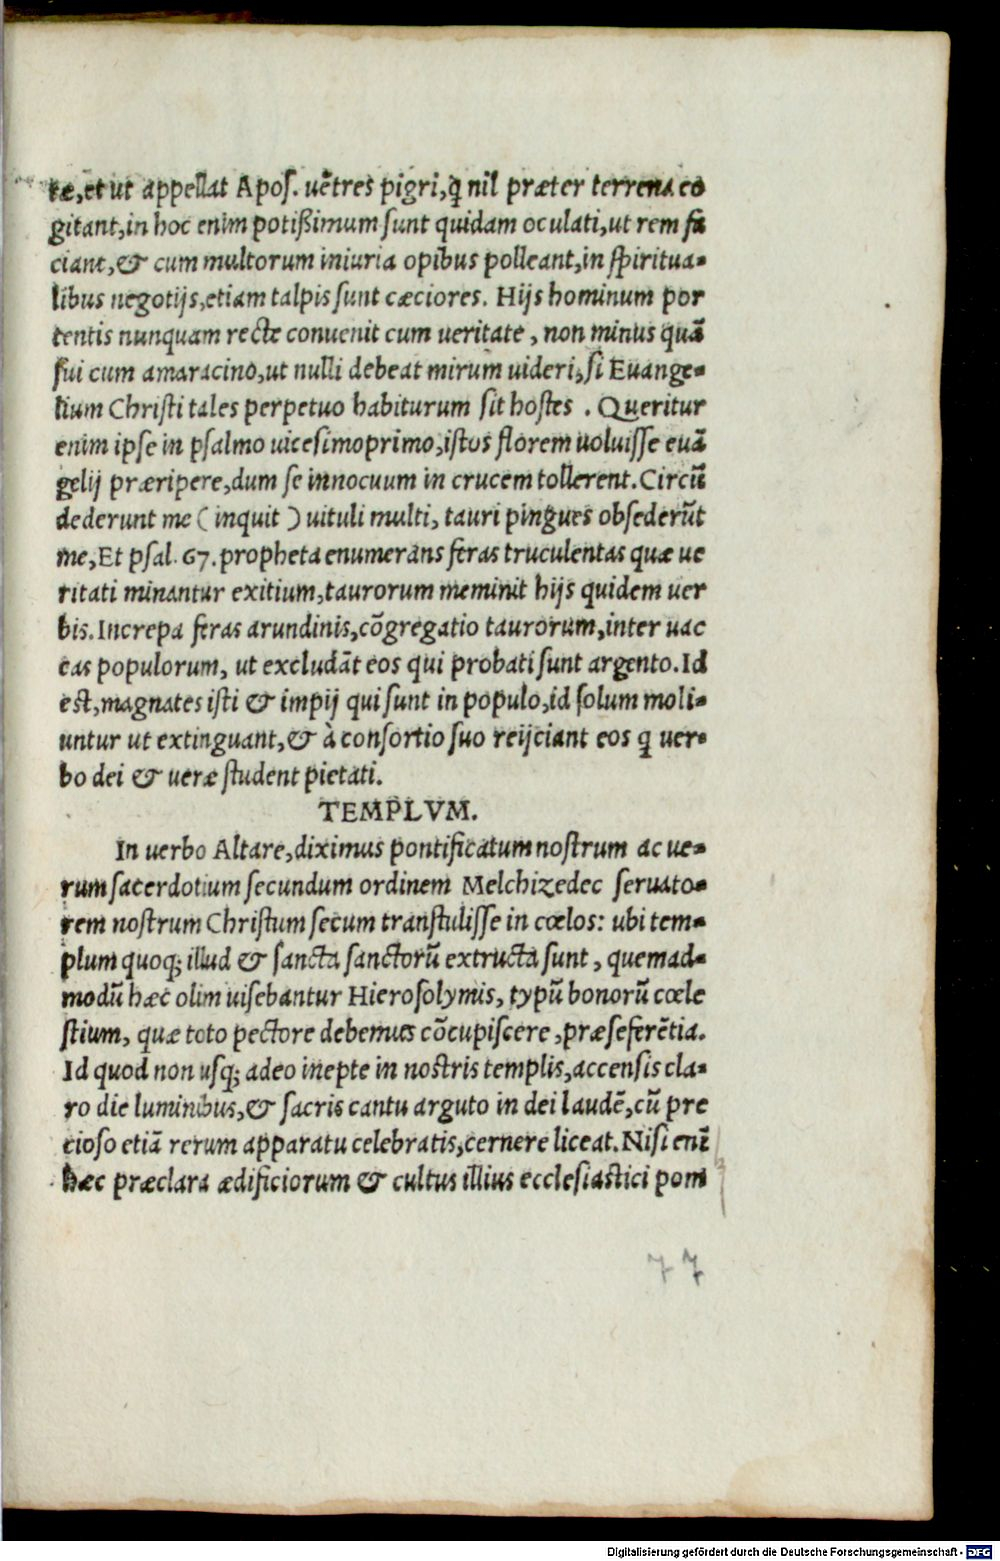 tæ, et ut appellat Apos. uẽtres pigri, q̃ nil præter terrena co
gitant, in hoc enim potißimum sunt quidam oculati, ut rem fa
ciant, & cum multorum iniuria opibus polleant, in spiritua-
libus negotijs, etiam talpis sunt cæciores. Hijs hominum por
tentis nunquam recte conuenit cum ueritate, non minus quã
sui cum amaracino, ut nulli debeat mirum uideri, si Euange-
lium Christi tales perpetuo habiturum sit hostes. Queritur
enim ipse in psalmo uicesimoprimo, istos florem uoluisse euã
gelij præripere, dum se innocuum in crucem tollerent. Circũ
dederunt me (inquit) uituli multi, tauri pingues obsederũt
me, Et psal. 67. propheta enumerans feras truculentas quæ ue
ritati minantur exitium, taurorum meminit hijs quidem uer
bis. Increpa feras arundinis, cõgregatio taurorum, inter uac
cas populorum, ut excludãt eos qui probati sunt argento. Id
est, magnates isti & impij qui sunt in populo, id solum moli-
untur ut extinguant, & à consortio suo reijciant eos q̃ uer-
bo dei & ueræ student pietati.
TEMPLVM.
In uerbo Altare, diximus pontificatum nostrum ac ue-
rum sacerdotium secundum ordinem Melchizedec seruato-
rem nostrum Christum secum transtulisse in cœlos: ubi tem-
plum quoq; illud & sancta sanctorũ extructa sunt, quemad-
modũ hæc olim uisebantur Hierosolymis, typũ bonorũ cœle
stium, quæ toto pectore debemus cõcupiscere, præseferẽtia.
Id quod non usq; adeo inepte in nostris templis, accensis cla-
ro die luminibus, & sacris cantu arguto in dei laudẽ, cũ pre
cioso etiã rerum apparatu celebratis, cernere liceat. Nisi enĩ
hæc præclara ædificiorum & cultus illius ecclesiastici pom
77
Digitalisierung gefördert durch die Deutsche Forschungsgemeinschaft - DFG